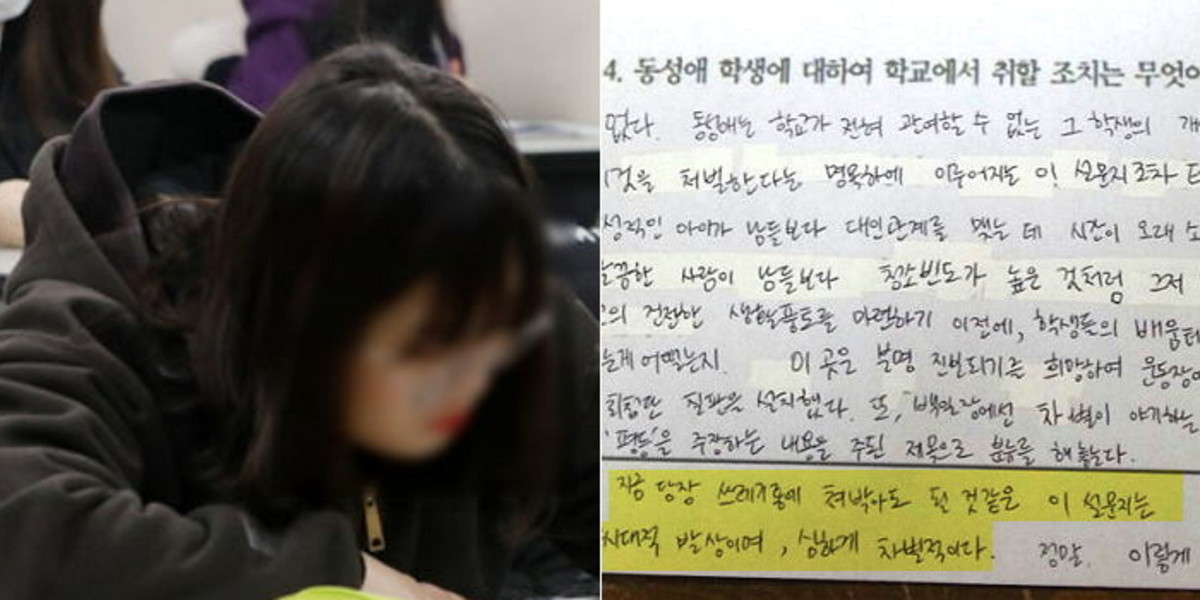 4. 동성애 학생에 대하여 학교에서 취할 조치는 무엇
없다. 동성애는 학교가 전혀 관여할 수 없는 그 학생의 개
것을 처벌한다는 명목하에 이루어지는 이 설문지조차
성적인 아이가 남들보다 대인관계를 맺는 데 시간이 오래 소
끔한 사람이 남들보다 청소빈도가 높은 것처럼 그저
의 건전한 생활풍토를 마련하기 이전에, 학생들의 배움터
는게 어떨는지. 이 곳은 분명 진보되기를 희망하여 운동장에
회전판 설치했다. 또, 백일장에선 차별이 야기하는
'평등'을 주장하는 내용을 주된 제목으로 분류를 해놓는다.
지금 당장 쓰레기통에 쳐박아도 될 것같은 이 설문지는
시대적 발상이며, 심하게 차별적이다. 정말. 이렇게